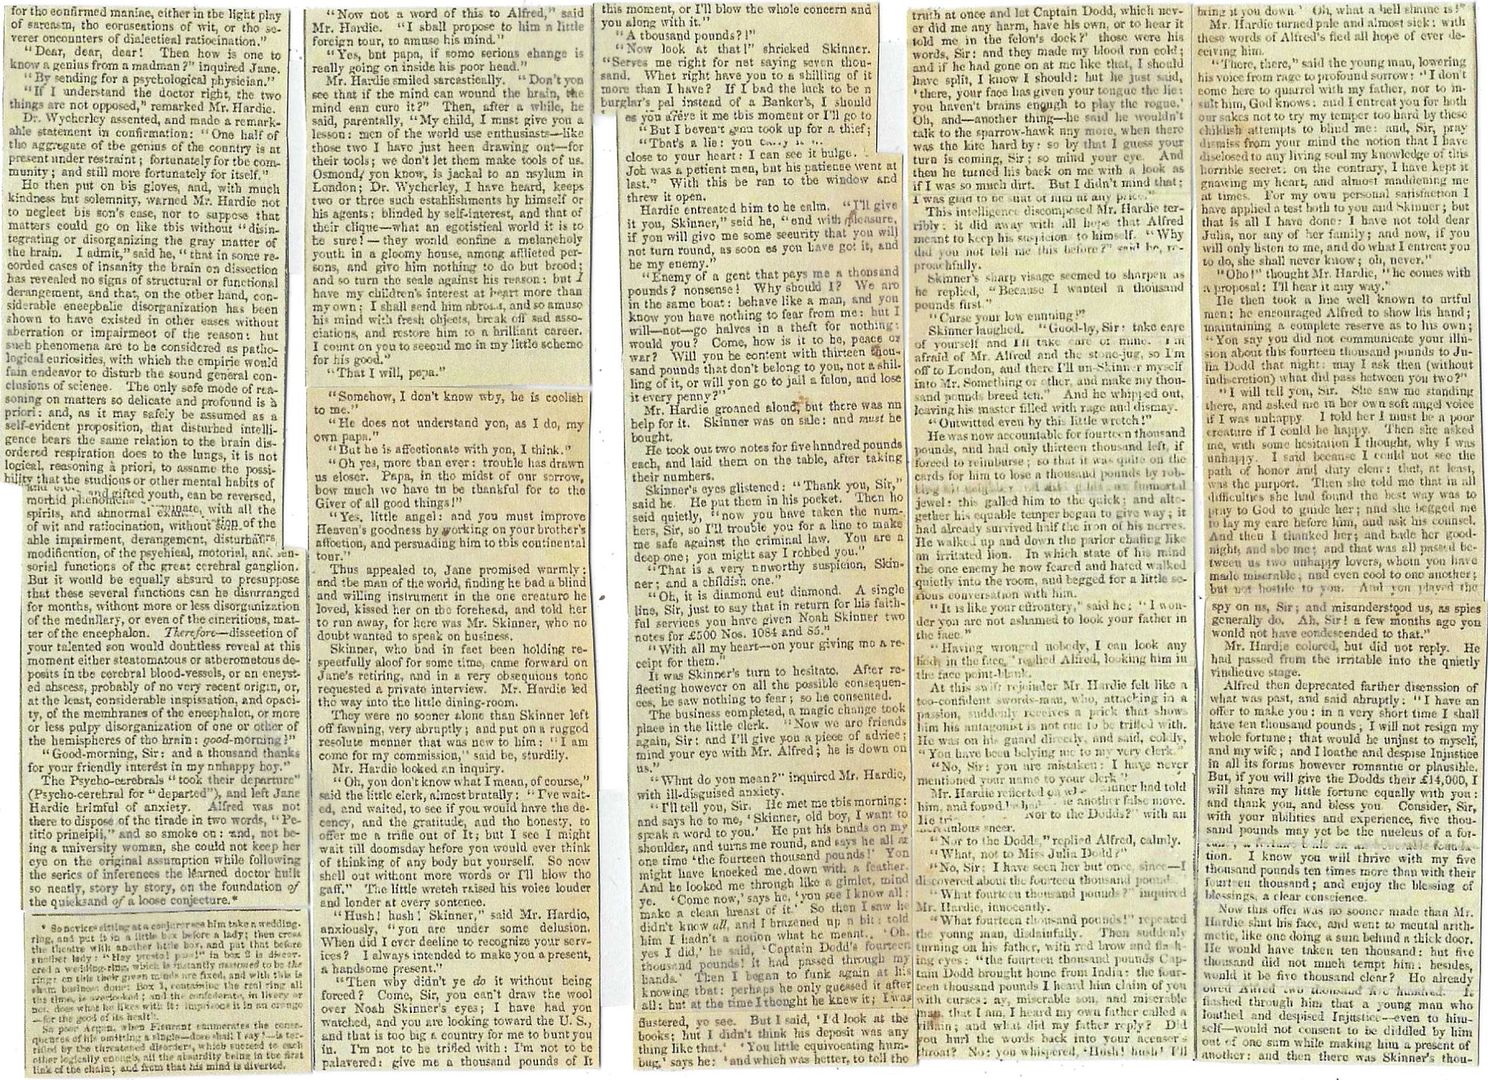 for the confirmed maniac, either in the light play
of sarcasm, the corusations of wit, or the se-
verer encounters of dialectical ratiocination."
"Dear, dear, dear! Then how is one to
know a genius from a madman?" inquired Jane.
"By sending for a psychological physician."
"If I understand the doctor right, the two
things are not opposed," remarked Mr. Hardie.
Dr. Wycherley assented, and made a remark-
able statement in confirmation: "One half of
the aggregate of the genius of the country is at
present under restraint; fortunately for the com-
munity; and still more fortunately for itself."
He then put on his gloves, and, with much
kindness but solemnity, warned Mr. Hardie not
to neglect his son's case, nor to suppose that
matters could go on like this without "disin-
tegrating or disorganizing the gray matter of
the brain. I admit," said he, "that in some re-
corded cases of insanity the brain on dissection
has revealed no signs of structural or functional
derangement, and that, on the other hand, con-
siderable encephalic disorganization has been
shown to have existed in other cases without
aberration or impairment of the reason: but
such phenomena are to be considered as patho-
logical curiosities, with which the empiric would
fain endeavor to disturb the sound general con-
clusions of science. The only safe mode of rea-
soning on matters so delicate and profound is à
priori: and, as it may safely be assumed as a
self-evident proposition, that disturbed intelli-
gence bears the same relation to the brain dis-
ordered respiration does to the lungs, it is not
logical, reasoning à priori, to assume the possi-
bility that the studious or other mental habits of
and gifted youth, can be reversed,
morbid phenomena
spirits, and abnormal with all the
of wit and ratiocination, without of the
able impairment, derangement, disturbance,
modification, of the psychical, motorial, and sen-
sorial functions of the great cerebral ganglion.
But it would be equally absurd to presuppose
that these several functions can be disarranged
for months, without more or less disorganization
of the medullary, or even of the cineritious, mat-
ter of the encephalon. Therefore—dissection of
your talented son would doubtless reveal at this
moment either steatomatous or atheromatous de-
posits in the cerebral blood-vessels, or an encyst-
ed abscess, probably of no very recent origin, or,
at the least, considerable inspissation, and opaci-
ty, of the membranes of the encephalon, or more
or less pulpy disorganization of one or other of
the hemispheres of the brain: good-morning!"
"Good-morning, Sir: and a thousand thanks
for your friendly interest in my unhappy boy."
The Psycho-cerebrals "took their departure"
(Psycho-cerebral for "departed"), and left Jane
Hardie brimful of anxiety. Alfred was not
there to dispose of the tirade in two words, "Pe-
titio principii," and so smoke on: and, not be-
ing a university woman, she could not keep her
eye on the original assumption while following
the series of inferences the learned doctor built
so neatly, story by story, on the foundation of
the quicksand of a loose conjecture.*
* So novices sitting at a conjurer see him take a wedding-
ring, and put it in a little box before a lady; then cross
the theatre with another little box, and put that before
another lady: "Hey presto! pass!" in box 2 is discov-
ered a wedding-ring, which is instantly assumed to be the
ring: on this their green minds are fixed, and with this is
sham business done: Box 1, containing the real ring all
the time, is overlooked; and the confederate, in livery or
not, does what he likes with it: imprisons it in an orange
—for the good of its health.
So poor Argan, when Fleurant enumerates the conse-
quences of his omitting a single—dose shall I say?—is ter-
rified by the threatened disorders, which succeed to each
other logically enough, all the absurdity being in the first
link of the chain; and from that his mind is diverted.
"Now not a word of this to Alfred," said
Mr. Hardie. "I shall propose to him a little
foreign tour, to amuse his mind."
"Yes, but papa, if some serious change is
really going on inside his poor head."
Mr. Hardie smiled sarcastically. "Don't you
see that if the mind can wound the brain, the
mind can cure it?" Then, after a while, he
said, parentally, "My child, I must give you a
lesson: men of the world use enthusiasts—like
those two I have just been drawing out—for
their tools; we don't let them make tools of us.
Osmond, you know, is jackal to an asylum in
London; Dr. Wycherley, I have heard, keeps
two or three such establishments by himself or
his agents: blinded by self-interest, and that of
their clique—what an egotistical world it is to
be sure!—they would confine a melancholy
youth in a gloomy house, among afflicted per-
sons, and give him nothing to do but brood;
and so turn the scale against his reason: but I
have my children's interest at heart more than
my own; I shall send him abroad, and so amuse
his mind with fresh objects, break off sad asso-
ciations, and restore him to a brilliant career.
I count on you to second me in my little scheme
for his good."
"That I will, papa."
"Somehow, I don't know why, he is coolish
to me."
"He does not understand you, as I do, my
own papa."
"But he is affectionate with you, I think."
"Oh yes, more than ever: trouble has drawn
us closer. Papa, in the midst of our sorrow,
how much we have to be thankful for to the
Giver of all good things!"
"Yes, little angel: and you must improve
Heaven's goodness by working on your brother's
affection, and persuading him to this continental
tour."
Thus appealed to, Jane promised warmly:
and the man of the world, finding he had a blind
and willing instrument in the one creature he
loved, kissed her on the forehead, and told her
to run away, for here was Mr. Skinner, who no
doubt wanted to speak on business.
Skinner, who had in fact been holding re-
spectfully aloof for some time, came forward on
Jane's retiring, and in a very obsequious tone
requested a private interview. Mr. Hardie led
the way into the little dining-room.
They were no sooner alone than Skinner left
off fawning, very abruptly; and put on a rugged
resolute manner that was new to him: "I am
come for my commission," said he, sturdily.
Mr. Hardie looked an inquiry.
"Oh, you don't know what I mean, of course,"
said the little clerk, almost brutally: "I've wait-
ed, and waited, to see if you would have the de-
cency, and the gratitude, and the honesty, to
offer me a trifle out of It; but I see I might
wait till doomsday before you would ever think
of thinking of any body but yourself. So now
shell out without more words or I'll blow the
gaff." The little wretch raised his voice louder
and louder at every sentence.
"Hush! hush! Skinner," said Mr. Hardie,
anxiously, "you are under some delusion.
When did I ever decline to recognize your serv-
ices? I always intended to make you a present,
a handsome present."
"Then why didn't ye do it without being
forced? Come, Sir, you can't draw the wool
over Noah Skinner's eyes; I have had you
watched, and you are looking toward the U. S.,
and that is too big a country for me to hunt you
in. I'm not to be trifled with: I'm not to be
palavered: give me a thousand pounds of It
this moment, or I'll blow the whole concern and
you along with it."
"A thousand pounds?!"
"Now look at that!" shrieked Skinner.
"Serves me right for not saying seven thou-
sand. What right have you to a shilling of it
more than I have? If I had the luck to be a
burglar's pal instead of a Banker's, I should
es you a'ere it me this moment or I'll go to
"But I haven't took up for a thief;
"That's a lie: you
close to your heart: I can see it bulge.
Job was a patient man, but his patience went at
last." With this he ran to the window and
threw it open.
Hardie entreated him to be calm. "I'll give
it you, Skinner," said he, "and with pleasure,
if you will give me some security that you will
not turn round, as soon as you have got it, and
be my enemy."
"Enemy of a gent that pays me a thousand
pounds? nonsense! Why should I? We are
in the same boat: behave like a man, and you
know you have nothing to fear from me: but I
will—not—go halves in a theft for nothing:
would you? Come, how is it to be, peace or
war? Will you be content with thirteen thou-
sand pounds that don't belong to you, not a shil-
ling of it, or will you go to jail a felon, and lose
it every penny?"
Mr. Hardie groaned aloud, but there was no
help for it. Skinner was on sale: and must be
bought.
He took out two notes for five hundred pounds
each, and laid them on the table, after taking
their numbers.
Skinner's eyes glistened: "Thank you, Sir,"
said he. He put them in his pocket. Then he
said quietly, "now you have taken the num-
bers, Sir, so I'll trouble you for a line to make
me safe against the criminal law. You are a
deep one; you might say I robbed you."
"That is a very unworthy suspicion, Skin-
ner; and a childish one."
"Oh, it is diamond cut diamond. A single
line, Sir, just to say that in return for his faith-
ful services you have given Noah Skinner two
notes for £500 Nos. 1084 and 85."
"With all my heart—on your giving me a re-
ceipt for them."
It was Skinner's turn to hesitate. After re-
flecting however on all the possible consequen-
ces, he saw nothing to fear; so he consented.
The business completed, a magic change took
place in the little clerk. "Now we are friends
again, Sir: and I'll give you a piece of advice;
mind your eye with Mr. Alfred; he is down on
us."
"What do you mean?" inquired Mr. Hardie,
with ill-disguised anxiety.
"I'll tell you, Sir. He met me this morning:
and says he to me, 'Skinner, old boy, I want to
speak a word to you.' He put his hands on my
shoulder, and turns me round, and says he all at
one time 'the fourteen thousand pounds!' You
might have knocked me down with a feather.
And he looked me through like a gimlet, mind
ye. 'Come now,' says he, 'you see I know all:
make a clean breast of it.' So then I saw he
didn't know all, and I brazened up a bit: told
him I hadn't a notion what he meant. 'Oh,
yes I did,' he said, 'Captain Dodd's fourteen
thousand pounds! it had passed through my
hands.' Then I began to funk again at his
knowing that: perhaps he only guessed it after
all: but at the time I thought he knew it; I was
flustered, ye see. But I said, 'I'd look at the
books; but I didn't think his deposit was any
thing like that.' 'You little equivocating hum-
bug,' says he: 'and which was better, to tell the
truth at once and let Captain Dodd, which nev-
er did me any harm, have his own, or to hear it
told me in the felon's dock?' those were his
words, Sir: and they made my blood run cold;
and if he had gone on at me like that, I should
have split, I know I should: but he just said,
'there, your face has given your tongue the lie:
you haven't brains enough to play the rogue.'
Oh, and—another thing—he said he wouldn't
talk to the sparrow-hawk any more, when there
was the kite hard by: so by that I guess your
turn is coming, Sir; so mind your eye. And
then he turned his back on me with a look as
if I was so much dirt. But I didn't mind that;
I was glad to be shut of him at any price."
This intelligence discomposed Mr. Hardie ter-
ribly: it did away with all hope that Alfred
meant to keep his suspicion to himself. "Why
did you not tell me this before?" said he, re-
proachfully.
Skinner's sharp visage seemed to sharpen as
he replied, "Because I wanted a thousand
pounds first."
"Curse your low cunning!"
Skinner laughed. "Good-by, Sir: take care
of yourself and I'll take care of mine. I'm
afraid of Mr. Alfred and the stone-jug, so I'm
off to London, and there I'll un-Skinner myself
into Mr. Something or other, and make my thou-
sand pounds breed ten." And he whipped out,
leaving his master filled with rage and dismay.
"Outwitted even by this little wretch!"
He was now accountable for fourteen thousand
pounds, and had only thirteen thousand left, if
forced to reimburse; so that it was quite on the
cards for him to lose a thousand pounds by rob-
bing his neighbor and an immortal
jewel: this galled him to the quick; and alto-
gether his equable temper began to give way; it
had already survived half the iron of his nerves.
He walked up and down the parlor chafing like
an irritated lion. In which state of his mind
the one enemy he now feared and hated walked
quietly into the room, and begged for a little se-
rious conversation with him.
"It is like your effrontery," said he: "I won-
der you are not ashamed to look your father in
the face."
"Having wronged nobody, I can look any
body in the face," replied Alfred, looking him in
the face point-blank.
At this swift rejoinder Mr. Hardie felt like a
too-confident swords-man, who, attacking in a
passion, suddenly receives a prick that shows
him his antagonist is not one to be trifled with.
He was on his guard directly, and said, coldly,
"You have been belying me to my very clerk."
"No, Sir: you are mistaken: I have never
mentioned your name to your clerk"
Mr. Hardie reflected on Skinner had told
him, and found he another false move.
He Nor to the Dodds?" with an
sneer.
"Nor to the Dodds," replied Alfred, calmly.
"What, not to Miss Julia Dodd?"
"No, Sir: I have seen her but once, since—I
discovered about the fourteen thousand pound
"What fourteen thousand pounds?" inquired
Mr. Hardie, innocently.
"What fourteen thousand pounds!" repeated
the young man, disdainfully. Then suddenly
turning on his father, with red brow and flash-
ing eyes: "the fourteen thousand pounds Cap-
tain Dodd brought home from India: the four-
teen thousand pounds I heard him claim of you
with curses: ay, miserable son, and miserable
man, that I am, I heard my own father called a
villain; and what did my father reply? Did
you hurl the words back into your accuser's
throat? No: you whispered, 'Hush! hush! I'll
bring it you down.' Oh, what a hell shame is!"
Mr. Hardie turned pale and almost sick: with
these words of Alfred's fled all hope of ever de-
ceiving him.
"There, there," said the young man, lowering
his voice from rage to profound sorrow: "I don't
come here to quarrel with my father, nor to in-
sult him, God knows: and I entreat you for both
our sakes not to try my temper too hard by these
childish attempts to blind me: and, Sir, pray
dismiss from your mind the notion that I have
disclosed to any living soul my knowledge of this
horrible secret: on the contrary, I have kept it
gnawing my heart, and almost maddening me
at times. For my own personal satisfaction I
have applied a test both to you and Skinner; but
that is all I have done: I have not told dear
Julia, nor any of her family; and now, if you
will only listen to me, and do what I entreat you
to do, she shall never know; oh, never."
"Oho!" thought Mr. Hardie, "he comes with
a proposal: I'll hear it any way."
He then took a line well known to artful
men: he encouraged Alfred to show his hand;
maintaining a complete reserve as to his own;
"You say you did not communicate your illu-
sion about this fourteen thousand pounds to Ju-
lia Dodd that night: may I ask then (without
indiscretion) what did pass between you two?"
"I will tell you, Sir. She saw me standing
there, and asked me in her own soft angel voice
if I was unhappy. I told her I must be a poor
creature if I could be happy. Then she asked
me, with some hesitation I thought, why I was
unhappy. I said because I could not see the
path of honor and duty clear: that, at least,
was the purport. Then she told me that in all
difficulties she had found the best way was to
pray to God to guide her; and she begged me
to lay my care before him, and ask his counsel.
And then I thanked her; and bade her good-
night, and she me; and that was all passed be-
tween us two unhappy lovers, whom you have
made miserable; and even cool to one another;
but not hostile to you. And you played the
spy on us, Sir; and misunderstood us, as spies
generally do. Ah, Sir! a few months ago you
would not have condescended to that."
Mr. Hardie colored, but did not reply. He
had passed from the irritable into the quietly
vindictive stage.
Alfred then deprecated farther discussion of
what was past, and said abruptly: "I have an
offer to make you; in a very short time I shall
have ten thousand pounds; I will not resign my
whole fortune; that would be unjust to myself,
and my wife; and I loathe and despise Injustice
in all its forms however romantic or plausible.
But, if you will give the Dodds their £14,000, I
will share my little fortune equally with you:
and thank you, and bless you. Consider, Sir,
with your abilities and experience, five thou-
sand pounds may yet be the nucleus of a for-
tune; a fortune built on an honorable founda-
tion. I know you will thrive with my five
thousand pounds ten times more than with their
fourteen thousand; and enjoy the blessing of
blessings, a clear conscience.
Now this offer was no sooner made than Mr.
Hardie shut his face, and went to mental arith-
metic, like one doing a sum behind a thick door.
He would have taken ten thousand: but five
thousand did not much tempt him: besides,
would it be five thousand clear? He already
owed Alfred two thousand five hundred. It
flashed through him that a young man who
loathed and despised Injustice—even to him-
self—would not consent to be diddled by him
out of one sum while making him a present of
another: and then there was Skinner's thou-